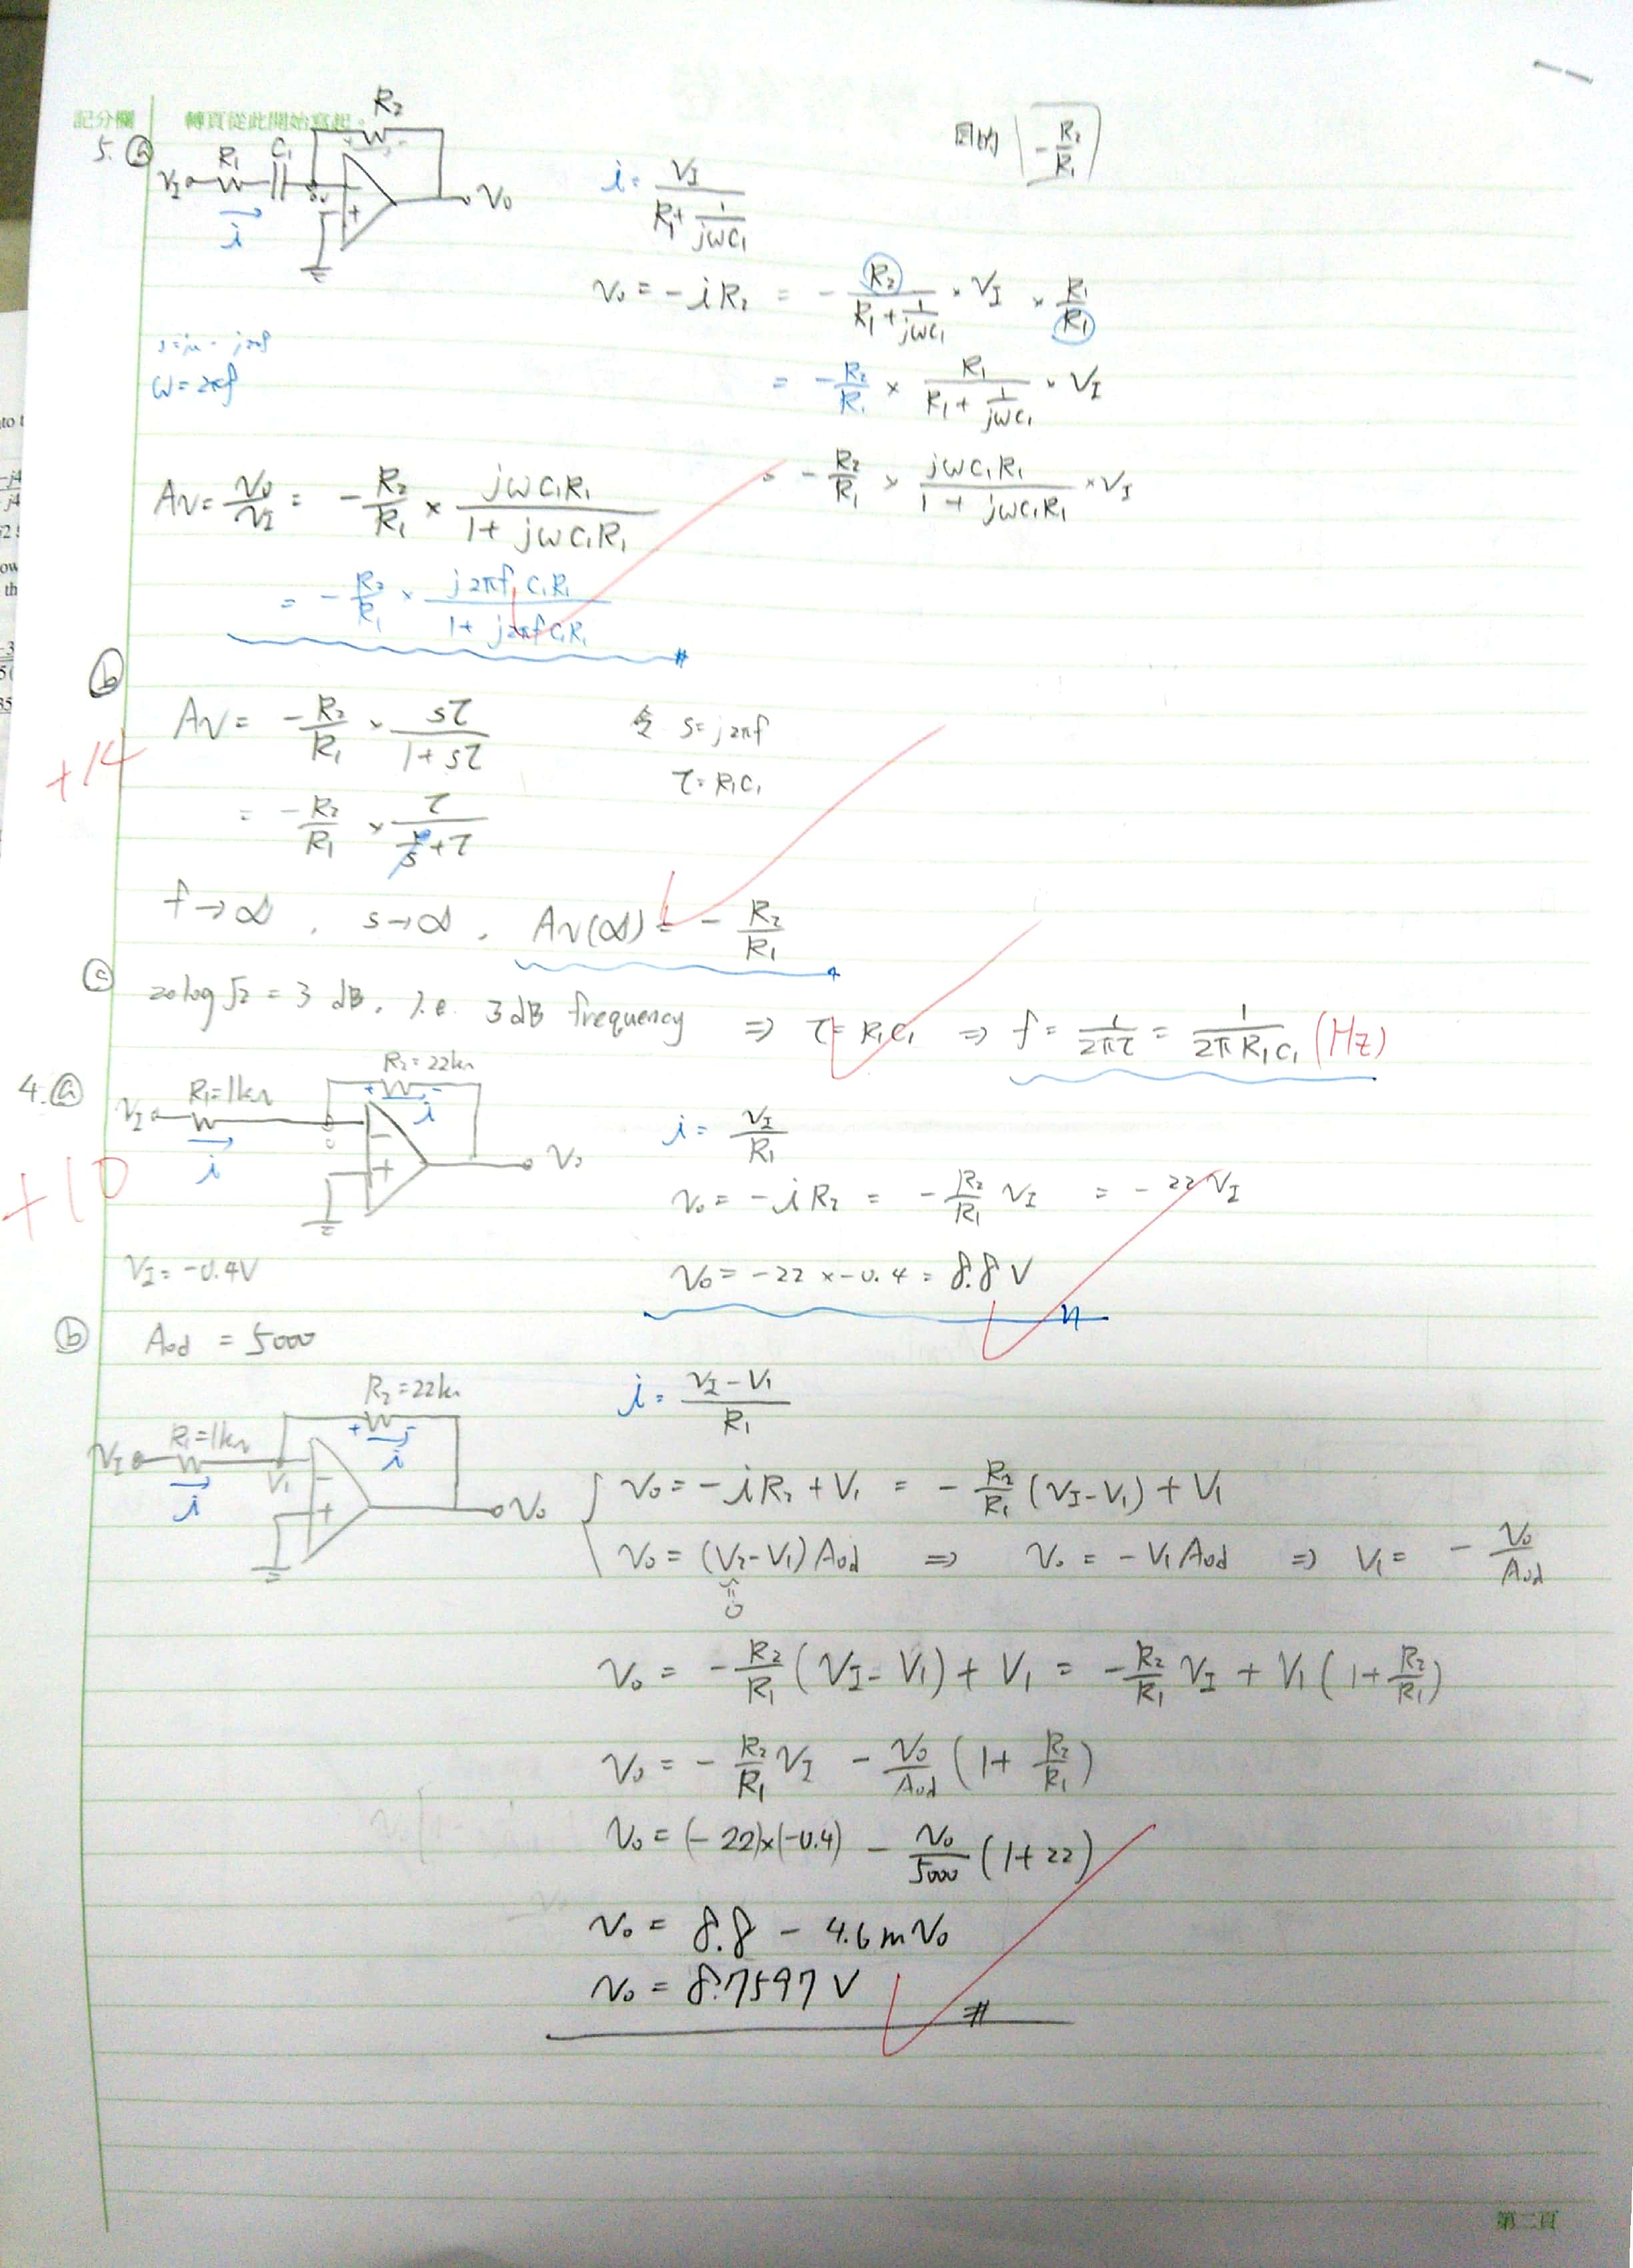 記分欄 轉頁從此開始寫起。
5. ⓐ
R₂
R₁ C₁
V_I
V₀
+
i
i = V_I / (R₁ + 1/(jωC₁))
目的 -R₂/R₁
V₀ = -iR₂ = - R₂/(R₁ + 1/(jωC₁)) × V_I × R₁/R₁
ω = 2πf
= -R₂/R₁ × R₁/(R₁ + 1/(jωC₁)) × V_I
= -R₂/R₁ × jωC₁R₁/(1 + jωC₁R₁) × V_I
Av = V₀/V_I = -R₂/R₁ × jωC₁R₁/(1 + jωC₁R₁)
= -R₂/R₁ × j2πf C₁R₁/(1 + j2πf C₁R₁) #
ⓑ
+14
Av = -R₂/R₁ × sτ/(1 + sτ) 令 s = j2πf
τ = R₁C₁
= -R₂/R₁ × τ/(1/s + τ)
f → ∞ , s → ∞ , Av(∞) = -R₂/R₁
ⓒ 20log√2 = 3 dB, i.e. 3dB frequency ⇒ τ = R₁C₁ ⇒ f = 1/(2πτ) = 1/(2πR₁C₁) (Hz)
4. ⓐ
R₂ = 22kΩ
R₁ = 1kΩ
V_I
+ -
i
i
-
+
V₀
+10
i = V_I/R₁
V₀ = -iR₂ = -R₂/R₁ V_I = -22 V_I
V_I = -0.4V
V₀ = -22 × -0.4 = 8.8 V
ⓑ Aod = 5000
R₂ = 22kΩ
R₁ = 1kΩ
V_I
V₁
+ -
i
i
-
+
V₀
i = (V_I - V₁)/R₁
V₀ = -iR₂ + V₁ = -R₂/R₁ (V_I - V₁) + V₁
V₀ = (V₂ - V₁) Aod ⇒ V₀ = -V₁ Aod ⇒ V₁ = -V₀/Aod
0
V₀ = -R₂/R₁ (V_I - V₁) + V₁ = -R₂/R₁ V_I + V₁ (1 + R₂/R₁)
V₀ = -R₂/R₁ V_I - V₀/Aod (1 + R₂/R₁)
V₀ = (-22)×(-0.4) - V₀/5000 (1 + 22)
V₀ = 8.8 - 4.6m V₀
V₀ = 8.7597 V #
第二頁